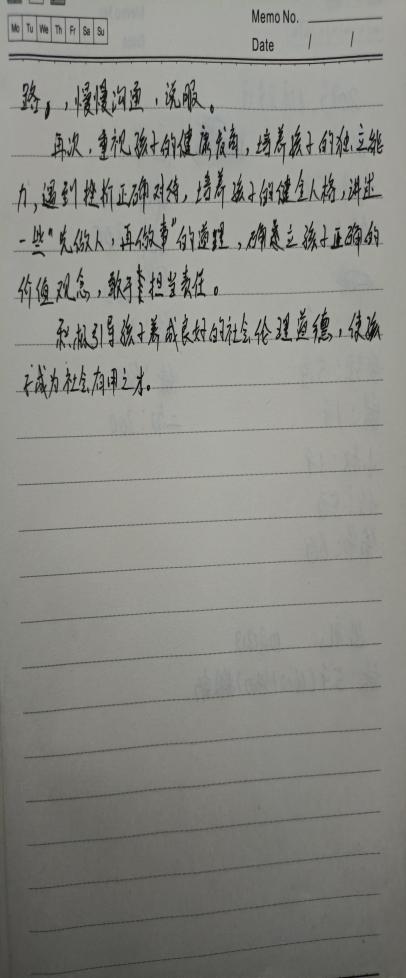 Mo Tu We Th Fr Sa Su
Memo No.
Date / /
路。,慢慢沟通,说服。
再次,重视孩子的健康教育,培养孩子的独立能
力,遇到挫折正确对待,培养孩子的健全人格,讲述
一些“先做人,再做事”的道理,确立孩子正确的
价值观念,敢于担当责任。
积极引导孩子养成良好的社会伦理道德,使孩
子成为社会有用之才。